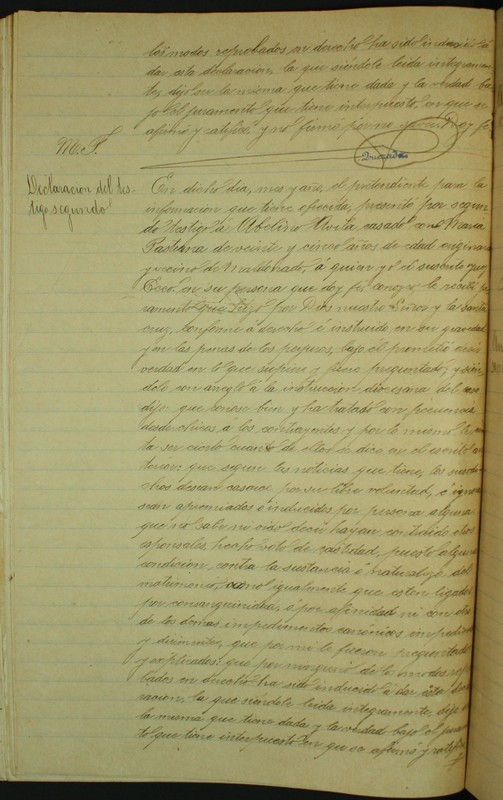 los modos reprobados en derecho ha sido inducido á
dar esta declaracion, la que siéndole leida integramen-
te, dijo ser la misma que tiene dada y la verdad ba-
jo el juramento que tiene interpuesto, en que se
afirmó y ratificó, y no firmó por no saber. Doy fé
M. F.
Quezada
Declaracion del tes-
tigo segundo
En dicho dia, mes y año, el pretendiente para la
informacion que tiene ofrecida, presentó por segun-
do testigo á Abelino Avila, casado con Maria
Pastrana de veinte y cinco años de edad originario
y vecino de Maldonado, á quien yo el suscrito Juez
Eccö. en su persona que doy fé conozco, le recibí ju-
ramento que hizo por Dios nuestro Señor y la santa
cruz, conforme á derecho é instruido en su gravedad
y en las penas de los perjuros, bajo él prometió decir
verdad en lo que supiere y fuere preguntado; y sién-
dolo con arreglo á la instruccion diocesana del caso
dijo: que conoce bien y ha tratado con frecuencia
desde chicos á los contrayentes y por lo mismo le cons-
ta ser cierto cuanto de ellos se dice en el escrito an-
terior: que segun las noticias que tiene, los suso di-
chos desean casarse por su libre voluntad, é ignora
sean apremiados é inducidos por persona alguna:
que no sabe ni oido decir hayan contraido otros
esponsales, hecho voto de castidad, puesto alguna
condicion, contra la sustancia ó naturaleza del
matrimonio, como igualmente que esten ligados
por consanguinidad, ó por afinidad ni con otro
de los demas impedimentos canónicos impedientes
y dirimentes, que por mi le fueron preguntados
y explicados: que por ninguno de los modos repro-
bados en derecho ha sido inducido á dar esta decla-
racion, la que siéndole leida integramente, dijo ser
la misma que tiene dada y la verdad bajo el juramen-
to que tiene interpuesto en que se afirmó y ratificó